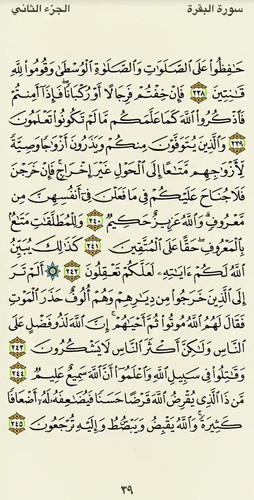 سورة البقرة الجزء الثاني
حَٰفِظُوا۟ عَلَى ٱلصَّلَوَٰتِ وَٱلصَّلَوٰةِ ٱلْوُسْطَىٰ وَقُومُوا۟ لِلَّهِ
قَٰنِتِينَ ٢٣٨ فَإِنْ خِفْتُمْ فَرِجَالًا أَوْ رُكْبَانًا ۖ فَإِذَآ أَمِنتُمْ
فَٱذْكُرُوا۟ ٱللَّهَ كَمَا عَلَّمَكُم مَّا لَمْ تَكُونُوا۟ تَعْلَمُونَ
٢٣٩ وَٱلَّذِينَ يُتَوَفَّوْنَ مِنكُمْ وَيَذَرُونَ أَزْوَٰجًا وَصِيَّةً
لِّأَزْوَٰجِهِم مَّتَٰعًا إِلَى ٱلْحَوْلِ غَيْرَ إِخْرَاجٍ ۚ فَإِنْ خَرَجْنَ
فَلَا جُنَاحَ عَلَيْكُمْ فِى مَا فَعَلْنَ فِىٓ أَنفُسِهِنَّ مِن
مَّعْرُوفٍ ۗ وَٱللَّهُ عَزِيزٌ حَكِيمٌ ٢٤٠ وَلِلْمُطَلَّقَٰتِ مَتَٰعٌۢ
بِٱلْمَعْرُوفِ ۖ حَقًّا عَلَى ٱلْمُتَّقِينَ ٢٤١ كَذَٰلِكَ يُبَيِّنُ
ٱللَّهُ لَكُمْ ءَايَٰتِهِۦ لَعَلَّكُمْ تَعْقِلُونَ ٢٤٢ ۞ أَلَمْ تَرَ
إِلَى ٱلَّذِينَ خَرَجُوا۟ مِن دِيَٰرِهِمْ وَهُمْ أُلُوفٌ حَذَرَ ٱلْمَوْتِ
فَقَالَ لَهُمُ ٱللَّهُ مُوتُوا۟ ثُمَّ أَحْيَٰهُمْ ۚ إِنَّ ٱللَّهَ لَذُو فَضْلٍ عَلَى
ٱلنَّاسِ وَلَٰكِنَّ أَكْثَرَ ٱلنَّاسِ لَا يَشْكُرُونَ ٢٤٣
وَقَٰتِلُوا۟ فِى سَبِيلِ ٱللَّهِ وَٱعْلَمُوٓا۟ أَنَّ ٱللَّهَ سَمِيعٌ عَلِيمٌ ٢٤٤
مَّن ذَا ٱلَّذِى يُقْرِضُ ٱللَّهَ قَرْضًا حَسَنًا فَيُضَٰعِفَهُۥ لَهُۥٓ أَضْعَافًا
كَثِيرَةً ۚ وَٱللَّهُ يَقْبِضُ وَيَبْصُۜطُ وَإِلَيْهِ تُرْجَعُونَ ٢٤٥
٣٩